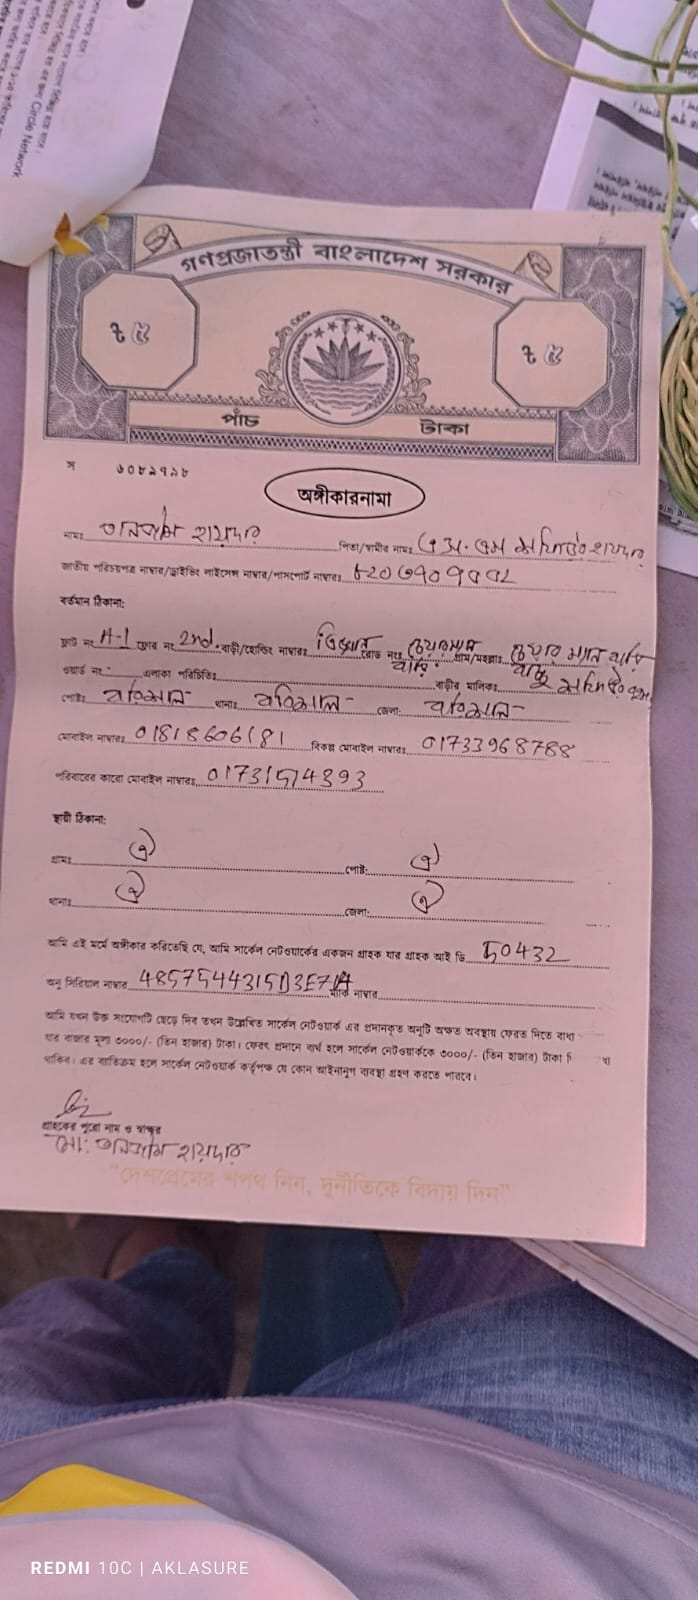 Circle Network
গণপ্রজাতন্ত্রী বাংলাদেশ সরকার
৳ ৫ ৳ ৫
পাঁচ টাকা
স ৬০৮৯৭৯৮
অঙ্গীকারনামা
নামঃ হায়দার পিতা/স্বামীর নামঃ এস. এম হায়দার
জাতীয় পরিচয়পত্র নাম্বার/ড্রাইভিং লাইসেন্স নাম্বার/পাসপোর্ট নাম্বারঃ
বর্তমান ঠিকানা:
ফ্লাট নং A-1 ফ্লোর নং 2nd. বাড়ী/হোল্ডিং নাম্বারঃ রোড নংঃ গ্রাম/মহল্লাঃ চেয়ারম্যান বাড়ি
ওয়ার্ড নং এলাকা পরিচিতিঃ বাড়ীর মালিকঃ
পোষ্টঃ বরিশাল থানাঃ বরিশাল জেলা: বরিশাল
মোবাইল নাম্বারঃ 01818606181 বিকল্প মোবাইল নাম্বারঃ 01733968788
পরিবারের কারো মোবাইল নাম্বারঃ 01731514393
স্থায়ী ঠিকানা:
গ্রামঃ ঐ পোষ্ট: ঐ
থানাঃ ঐ জেলা: ঐ
আমি এই মর্মে অঙ্গীকার করিতেছি যে, আমি সার্কেল নেটওয়ার্কের একজন গ্রাহক যার গ্রাহক আই ডি 50432
অনু সিরিয়াল নাম্বার 4857544315D3E71A মার্ক নাম্বার
আমি যখন উক্ত সংযোগটি ছেড়ে দিব তখন উল্লেখিত সার্কেল নেটওয়ার্ক এর প্রদানকৃত অনুটি অক্ষত অবস্থায় ফেরত দিতে বাধ্য
যার বাজার মূল্য ৩০০০/- (তিন হাজার) টাকা। ফেরৎ প্রদানে ব্যর্থ হলে সার্কেল নেটওয়ার্ককে ৩০০০/- (তিন হাজার) টাকা
থাকিব। এর ব্যতিক্রম হলে সার্কেল নেটওয়ার্ক কর্তৃপক্ষ যে কোন আইনানুগ ব্যবস্থা গ্রহণ করতে পারবে।
গ্রাহকের পুরো নাম ও স্বাক্ষর
মো: হায়দার
"দেশপ্রেমের শপথ নিন, দুর্নীতিকে বিদায় দিন"
REDMI 10C | AKLASURE